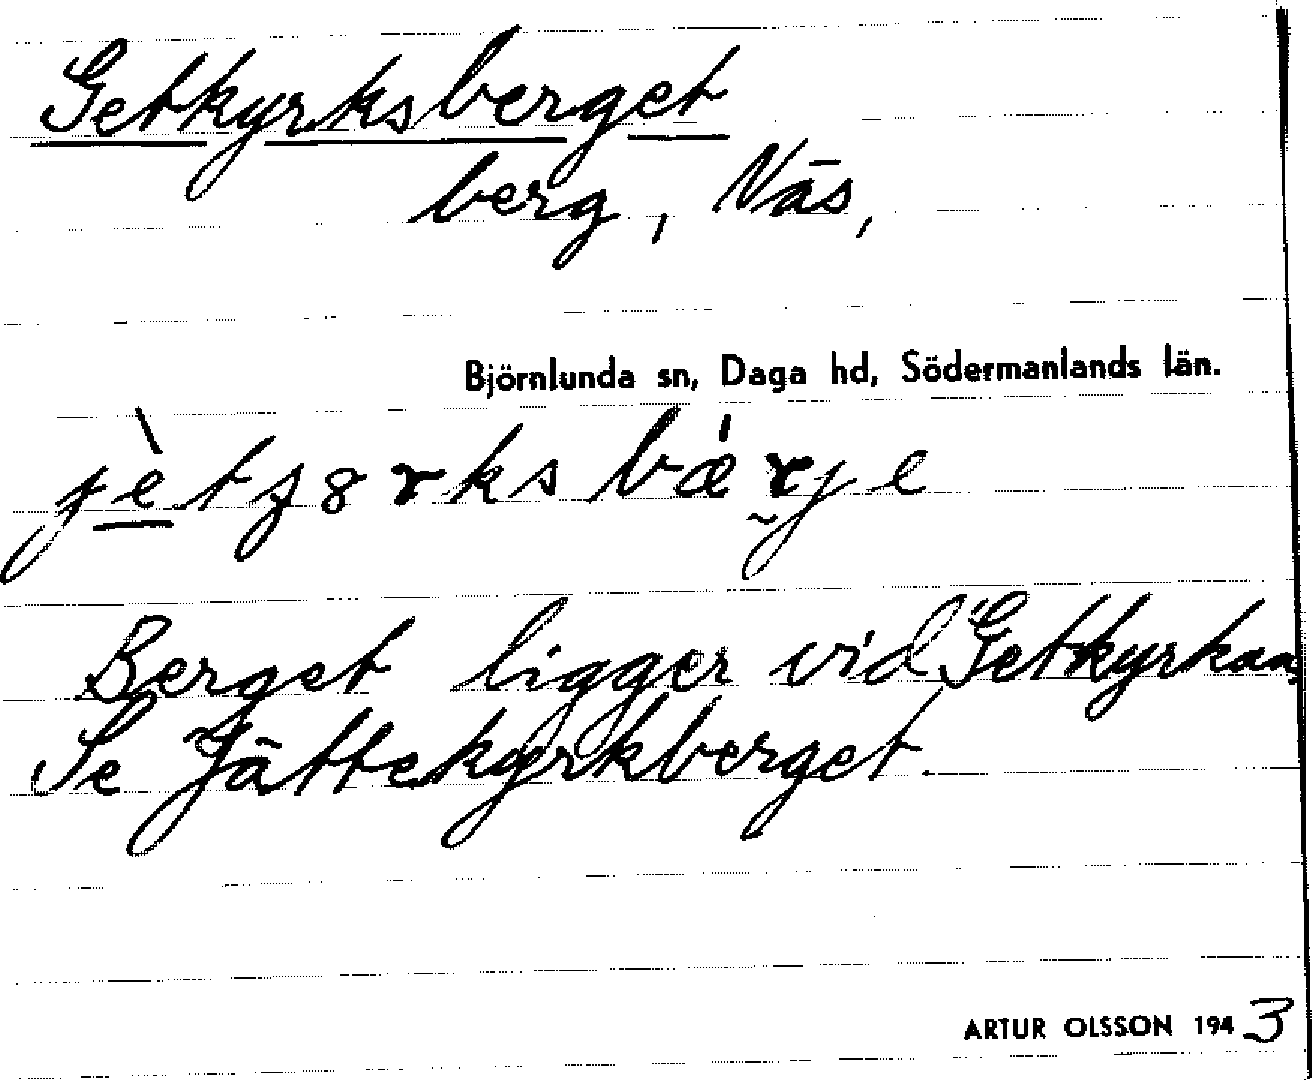 Getkyrksberget
berg, Näs,
Björnlunda sn, Daga hd, Södermanlands län.
Berget ligger vid Getkyrkan,
Se Jättekyrkberget
ARTUR OLSSON 1943